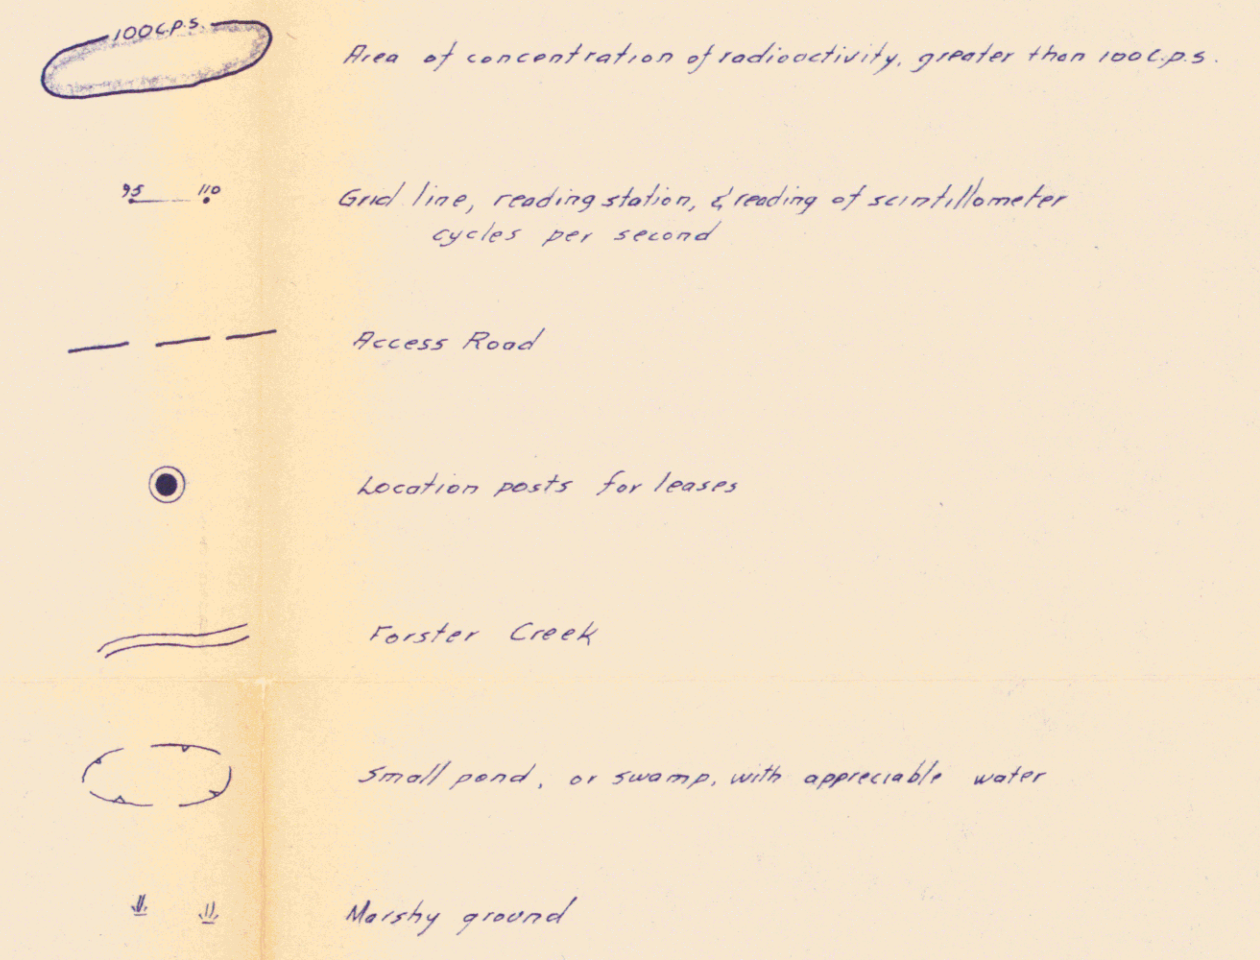 100 C.P.S.
Area of concentration of radioactivity, greater than 100 C.P.S.
95 110
Grid line, reading station, & reading of scintillometer
cycles per second
Access Road
Location posts for leases
Forster Creek
Small pond, or swamp, with appreciable water
Marshy ground